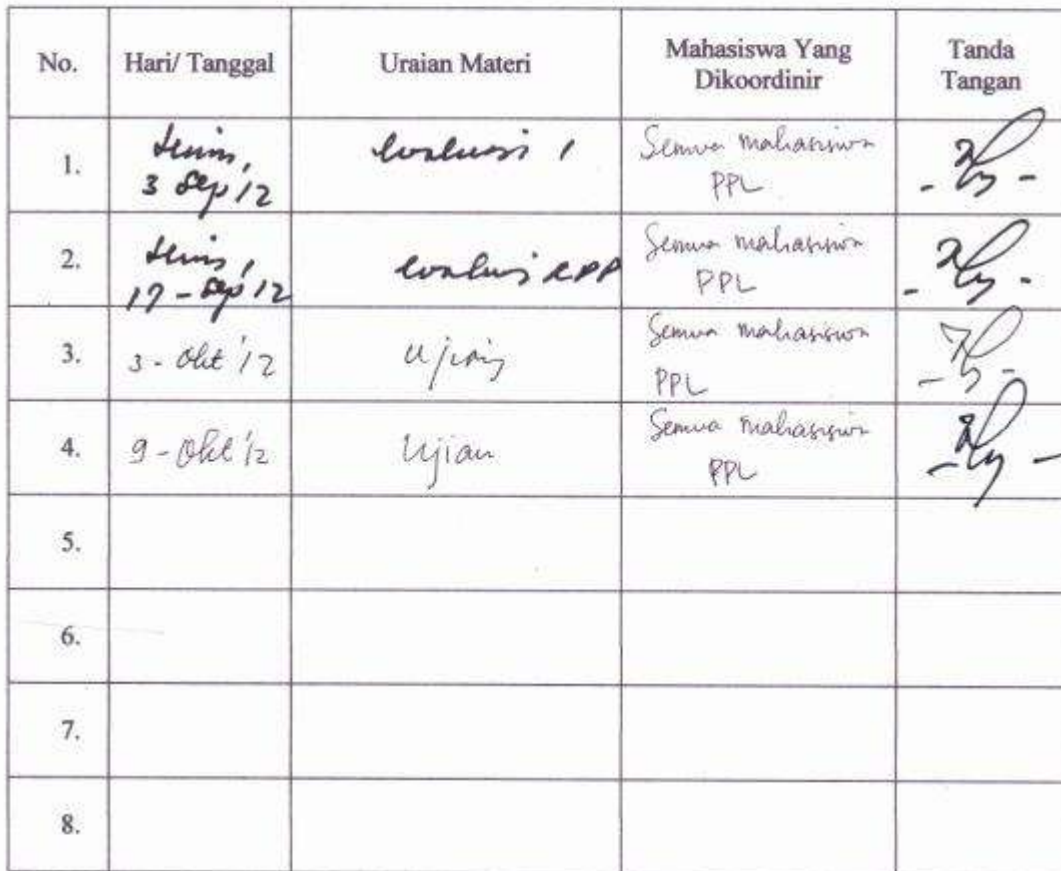 No. Hari/ Tanggal Uraian Materi Mahasiswa Yang Dikoordinir Tanda Tangan
1. Senin, 3 Sep '12 evaluasi 1 Semua mahasiswa PPL
2. Senin, 17 - Sep '12 evaluasi RPP Semua mahasiswa PPL
3. 3 - Okt '12 Ujian Semua mahasiswa PPL
4. 9 - Okt '12 Ujian Semua mahasiswa PPL
5.
6.
7.
8.